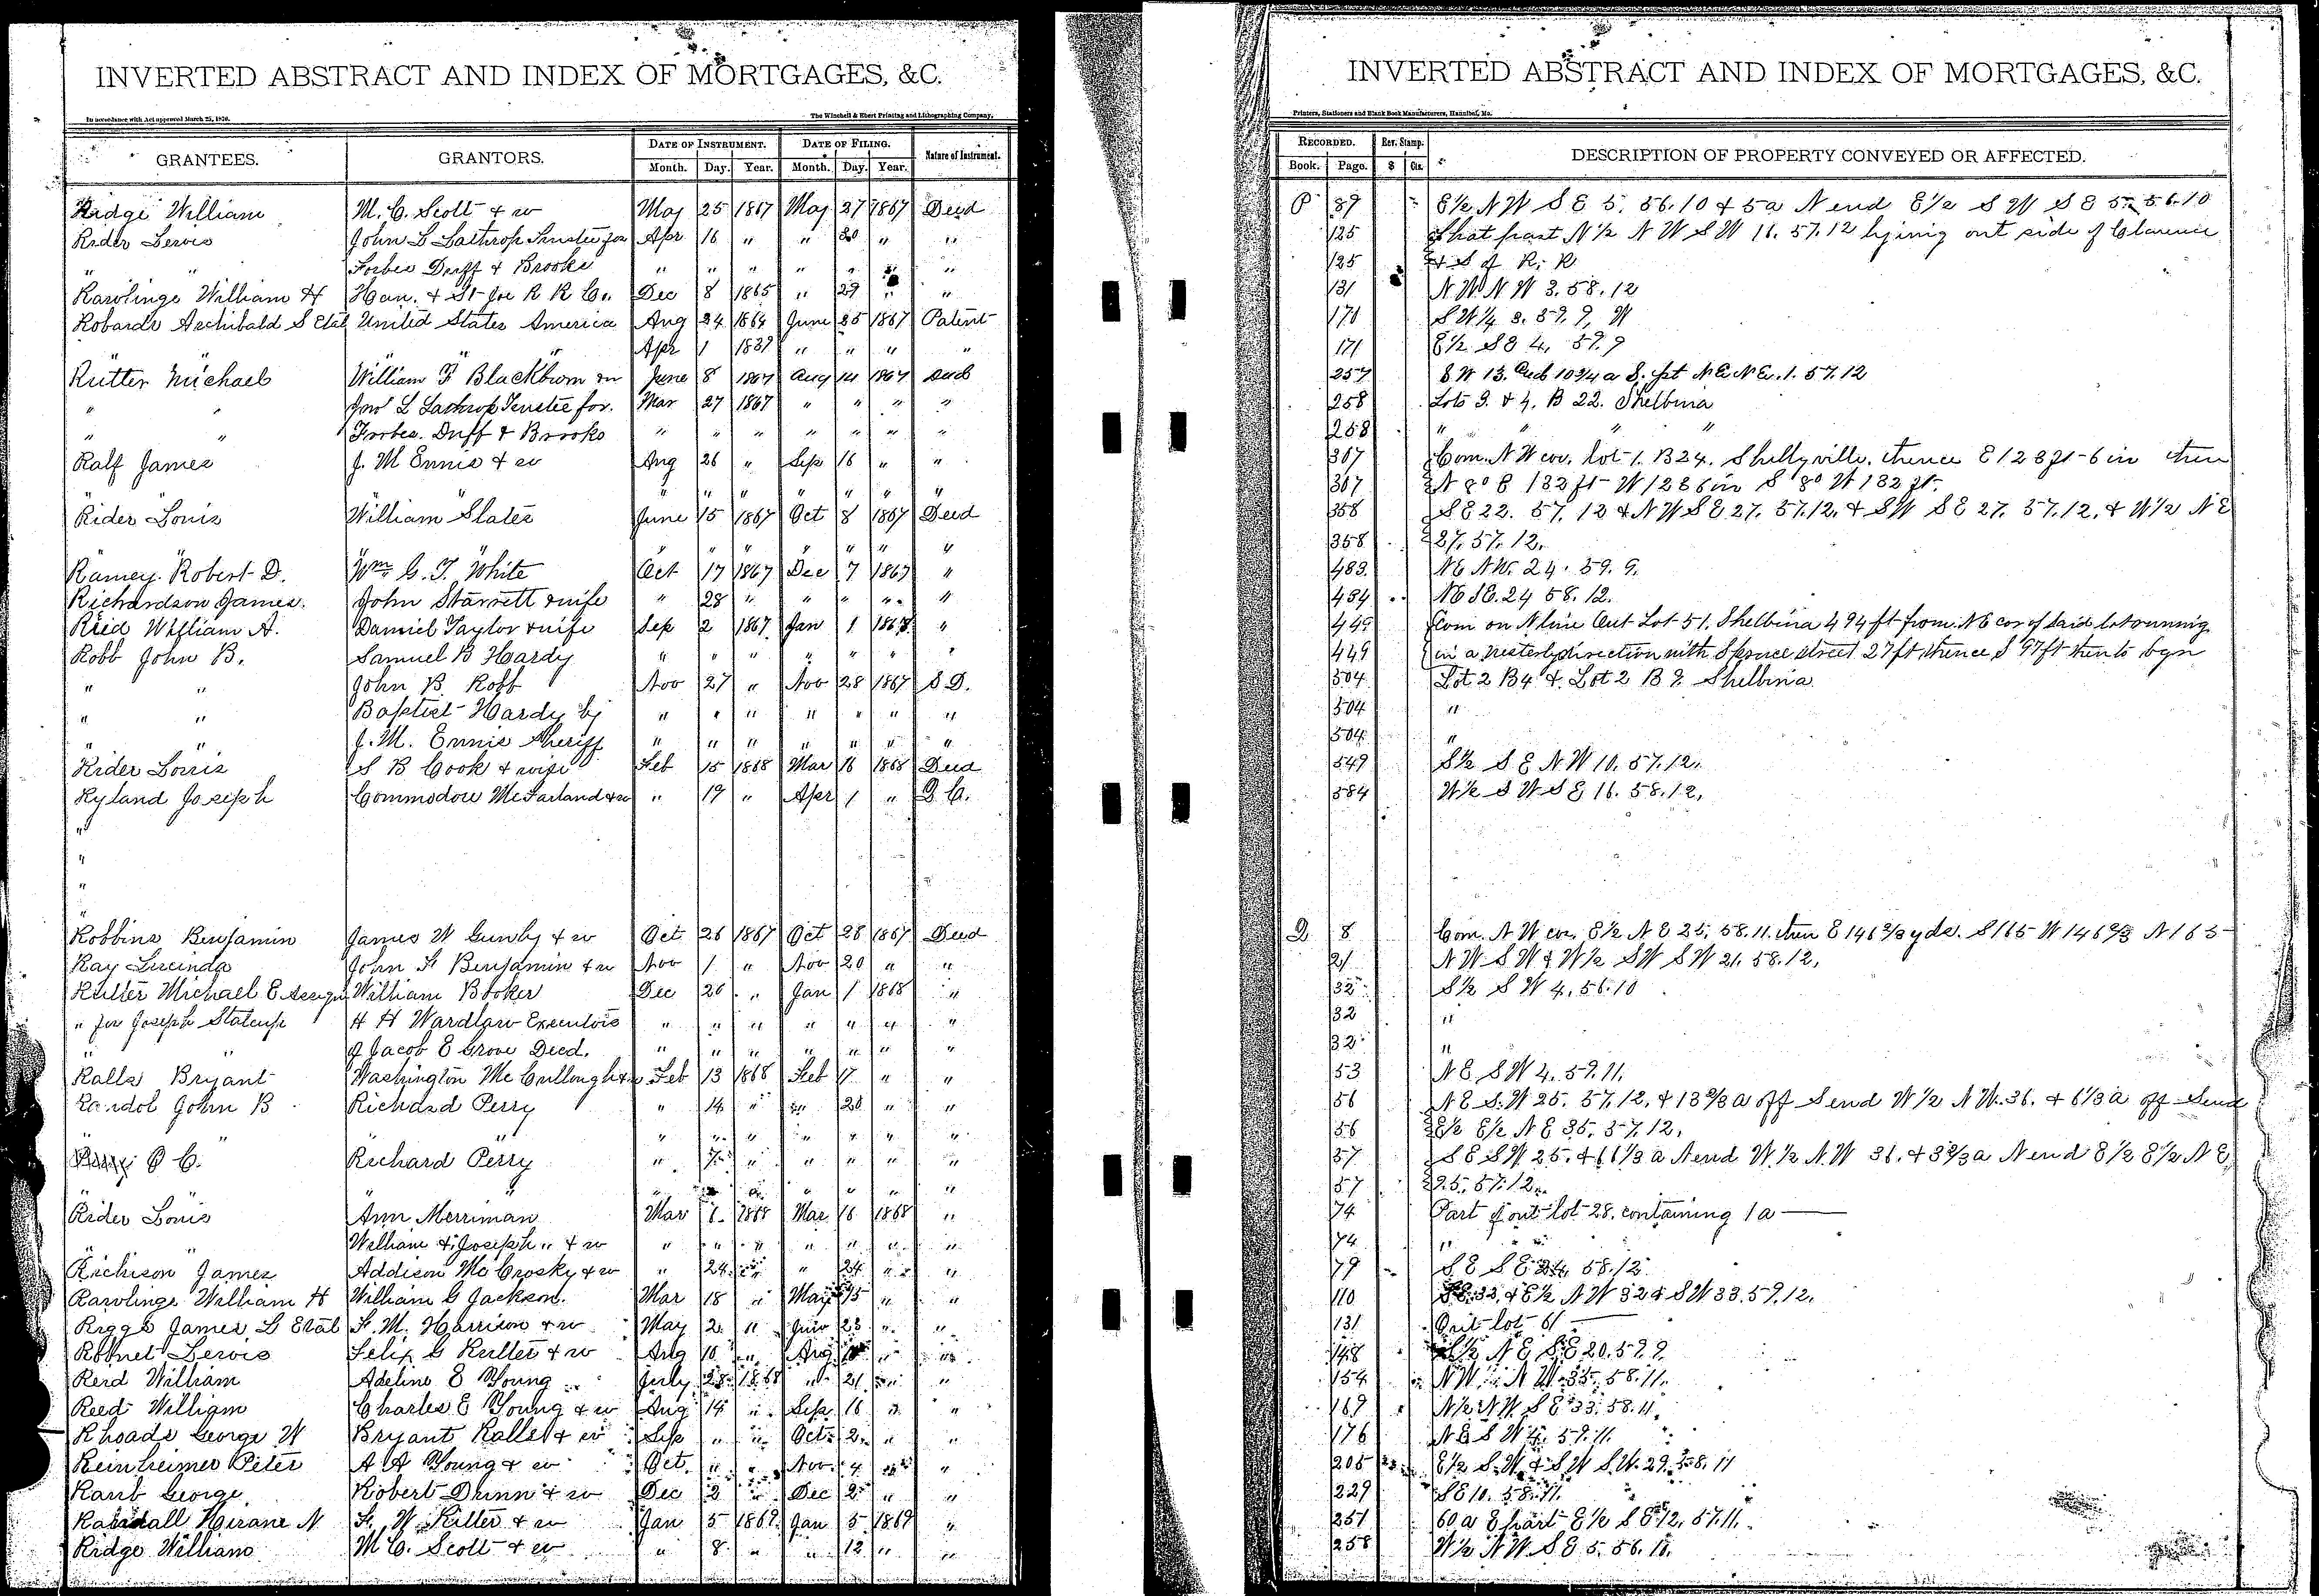 INVERTED ABSTRACT AND INDEX OF MORTGAGES, &C.
In accordance with Act approved March 25, 1870.
The Winchell & Ebert Printing and Lithographing Company,
GRANTEES. GRANTORS. DATE OF INSTRUMENT. DATE OF FILING. Nature of Instrument.
Month. Day. Year. Month. Day. Year.
Ridge William M. C. Scott & w May 25 1867 May 27 1867 Deed
Rider Lewis John L Lathrop Trustee for Apr 16 " " 30 " "
" " Forbes Duff & Brooks " " " " " "
Rawlings William H Han. & St Joe R R Co. Dec 8 1865 " 29 " "
Robards Archibald S Etal United States America Aug 24 1864 June 25 1867 Patent
" " " Apr 1 1839 " " " "
Rutter Michael William F Blackburn June 8 1867 Aug 14 1867 Deed
" " Jno L Lathrop Trustee for. Mar 27 1867 " " " "
" " Forbes. Duff & Brooks " " " " " " "
Ralf James J. M Ennis & w Aug 26 " Sep 16 " "
" " " " " " "
Rider Louis William Slater June 15 1867 Oct 8 1867 Deed
" " " " " " " "
Ramey Robert D. Wm. G. T. White Oct 17 1867 Dec 7 1867 "
Richardson James. John Starrett & wife " 28 " " " " "
Reid William A. Daniel Taylor & wife Sep 2 1867 Jan 1 1868 "
Robb John B. Samuel B Hardy " " " " " " "
" " John B. Robb Nov 27 " Nov 28 1867 S D.
" " Baptist Hardy by " " " " " " "
" " J. M. Ennis Sheriff " " " " " " "
Rider Louis S B Cook & wife Feb 15 1868 Mar 16 1868 Deed
Ryland Joseph Commodore McFarland & w " 19 " Apr 1 " Q C.
"
"
"
"
Robbins Benjamin James W Gunby & w Oct 26 1867 Oct 28 1867 Deed
Ray Lucinda John F Benjamin & w Nov 1 " Nov 20 " "
Rutter Michael E Assign William Booker Dec 26 " Jan 1 1868 "
" for Joseph H H Wardlaw Executors " " " " " " "
" " of Jacob E Grove Deed. " " " " " " "
Ralls Bryant Washington McCullough & w Feb 13 1868 Feb 17 " "
Randol John B Richard Perry " 14 " " 20 " "
" " " " " " " " "
C. Richard Perry " " " " " " "
" " " " " " "
Rider Louis Ann Merriman Mar 6 1868 Mar 16 1868 "
" " William & Joseph " & w " " " " " " "
Richison James Addison McCrosky & w " 24 " " 24 " "
Rawlings William H William G Jackson. Mar 18 " May 15 " "
Riggs James L Etal F. M. Harrison & w May 2 " Jun 23 " "
Lewis Felix G Rutter & w Aug 10 " Aug " "
Reid William Adeline E Young July 28 1868 " 21 " "
Reed William Charles E Young & w Aug 14 " Sep 16 " "
Rhoads George W Bryant Ralls & w Sep " " Oct 2 " "
Reinheimer Peter A A Young & w Oct " " Nov 4 " "
Raub George. Robert Dunn & w Dec 2 " Dec 2 " "
Hiram N F. W. Ritter & w Jan 5 1869 Jan 5 1869 "
Ridge William M C. Scott & w " 8 " " 12 " "
INVERTED ABSTRACT AND INDEX OF MORTGAGES, &C.
Printers, Stationers and Blank Book Manufacturers, Hannibal, Mo.
RECORDED. Rev. Stamp. DESCRIPTION OF PROPERTY CONVEYED OR AFFECTED.
Book. Page. $ Cts.
P 89 E½ N W S E 5. 56. 10 & 5a N end E½ S W S E 5. 56. 10
125 That part N½ N W S W 16. 57. 12 lying out side of Clarence
125 & S of R. R
131 N W N W 3. 58. 12
171 S W¼ 3. 59. 9, W
171 E½ S E 4, 59. 9
257 S W 13. 10¾ a S. pt N E N E. 1. 57. 12
258 Lots 3. & 4. B 22. Shelbina
258 " " "
307 Com. N W cor. lot 1. B 24. Shelbyville, thence E 128 ft-6 in then
307 N 8° E 132 ft W 128 6 in S 8° W 132 ft.
358 S E 22. 57. 12 & N W S E 27. 57. 12. & S W S E 27. 57. 12. & W½ N E
358 27. 57. 12.
483. N E N W. 24. 59. 9.
484 N E S E. 24 58. 12.
449 Com on N line Out Lot 51. Shelbina 494 ft from N E cor of said lot running
449 in a westerly direction with Spruce street 27 ft thence S 97 ft then to bgn
504 Lot 2 B 4 & Lot 2 B 9 Shelbina
504 "
504 "
549 S½ S E N W 10. 57. 12.
584 W½ S W S E 16. 58. 12,
Q 8 Com. N W cor. E½ N E 25. 58. 11. then E 146⅔ yds. S 165 W 146⅔ N 165
21 N W S W & W½ S W S W 21. 58. 12,
32 S½ S W 4. 56. 10
32 "
32 "
53 N E S W 4. 59. 11.
56 N E S. W 25. 57. 12. & 13⅔ a off S end W½ N W. 36. & 6⅓ a off S end
56 E½ E½ N E 35. 57. 12,
57 S E S W 25. & 66⅓ a N end W.½ N. W 36. & 33⅔ a N end E½ E½ N E
57 35. 57. 12.
74 Part of out lot 28. containing 1 a
74 " " "
79 S E S E 24. 58. 12.
110 S E. 32, & E½ N W 32 & S W 33. 59. 12.
131 Out lot 61
148 N E S E 20. 59. 9.
154 N W N W. 33. 58. 11.
169 N½ N W S E 33. 58. 11.
176 N E S W 4. 59. 11.
205 E½ S. W & S W S. W. 29. 58. 11
229 S E 10. 58. 11.
251 60 a E part E½ S E 12. 57. 11.
258 W½ N W. S E 5. 56. 10.